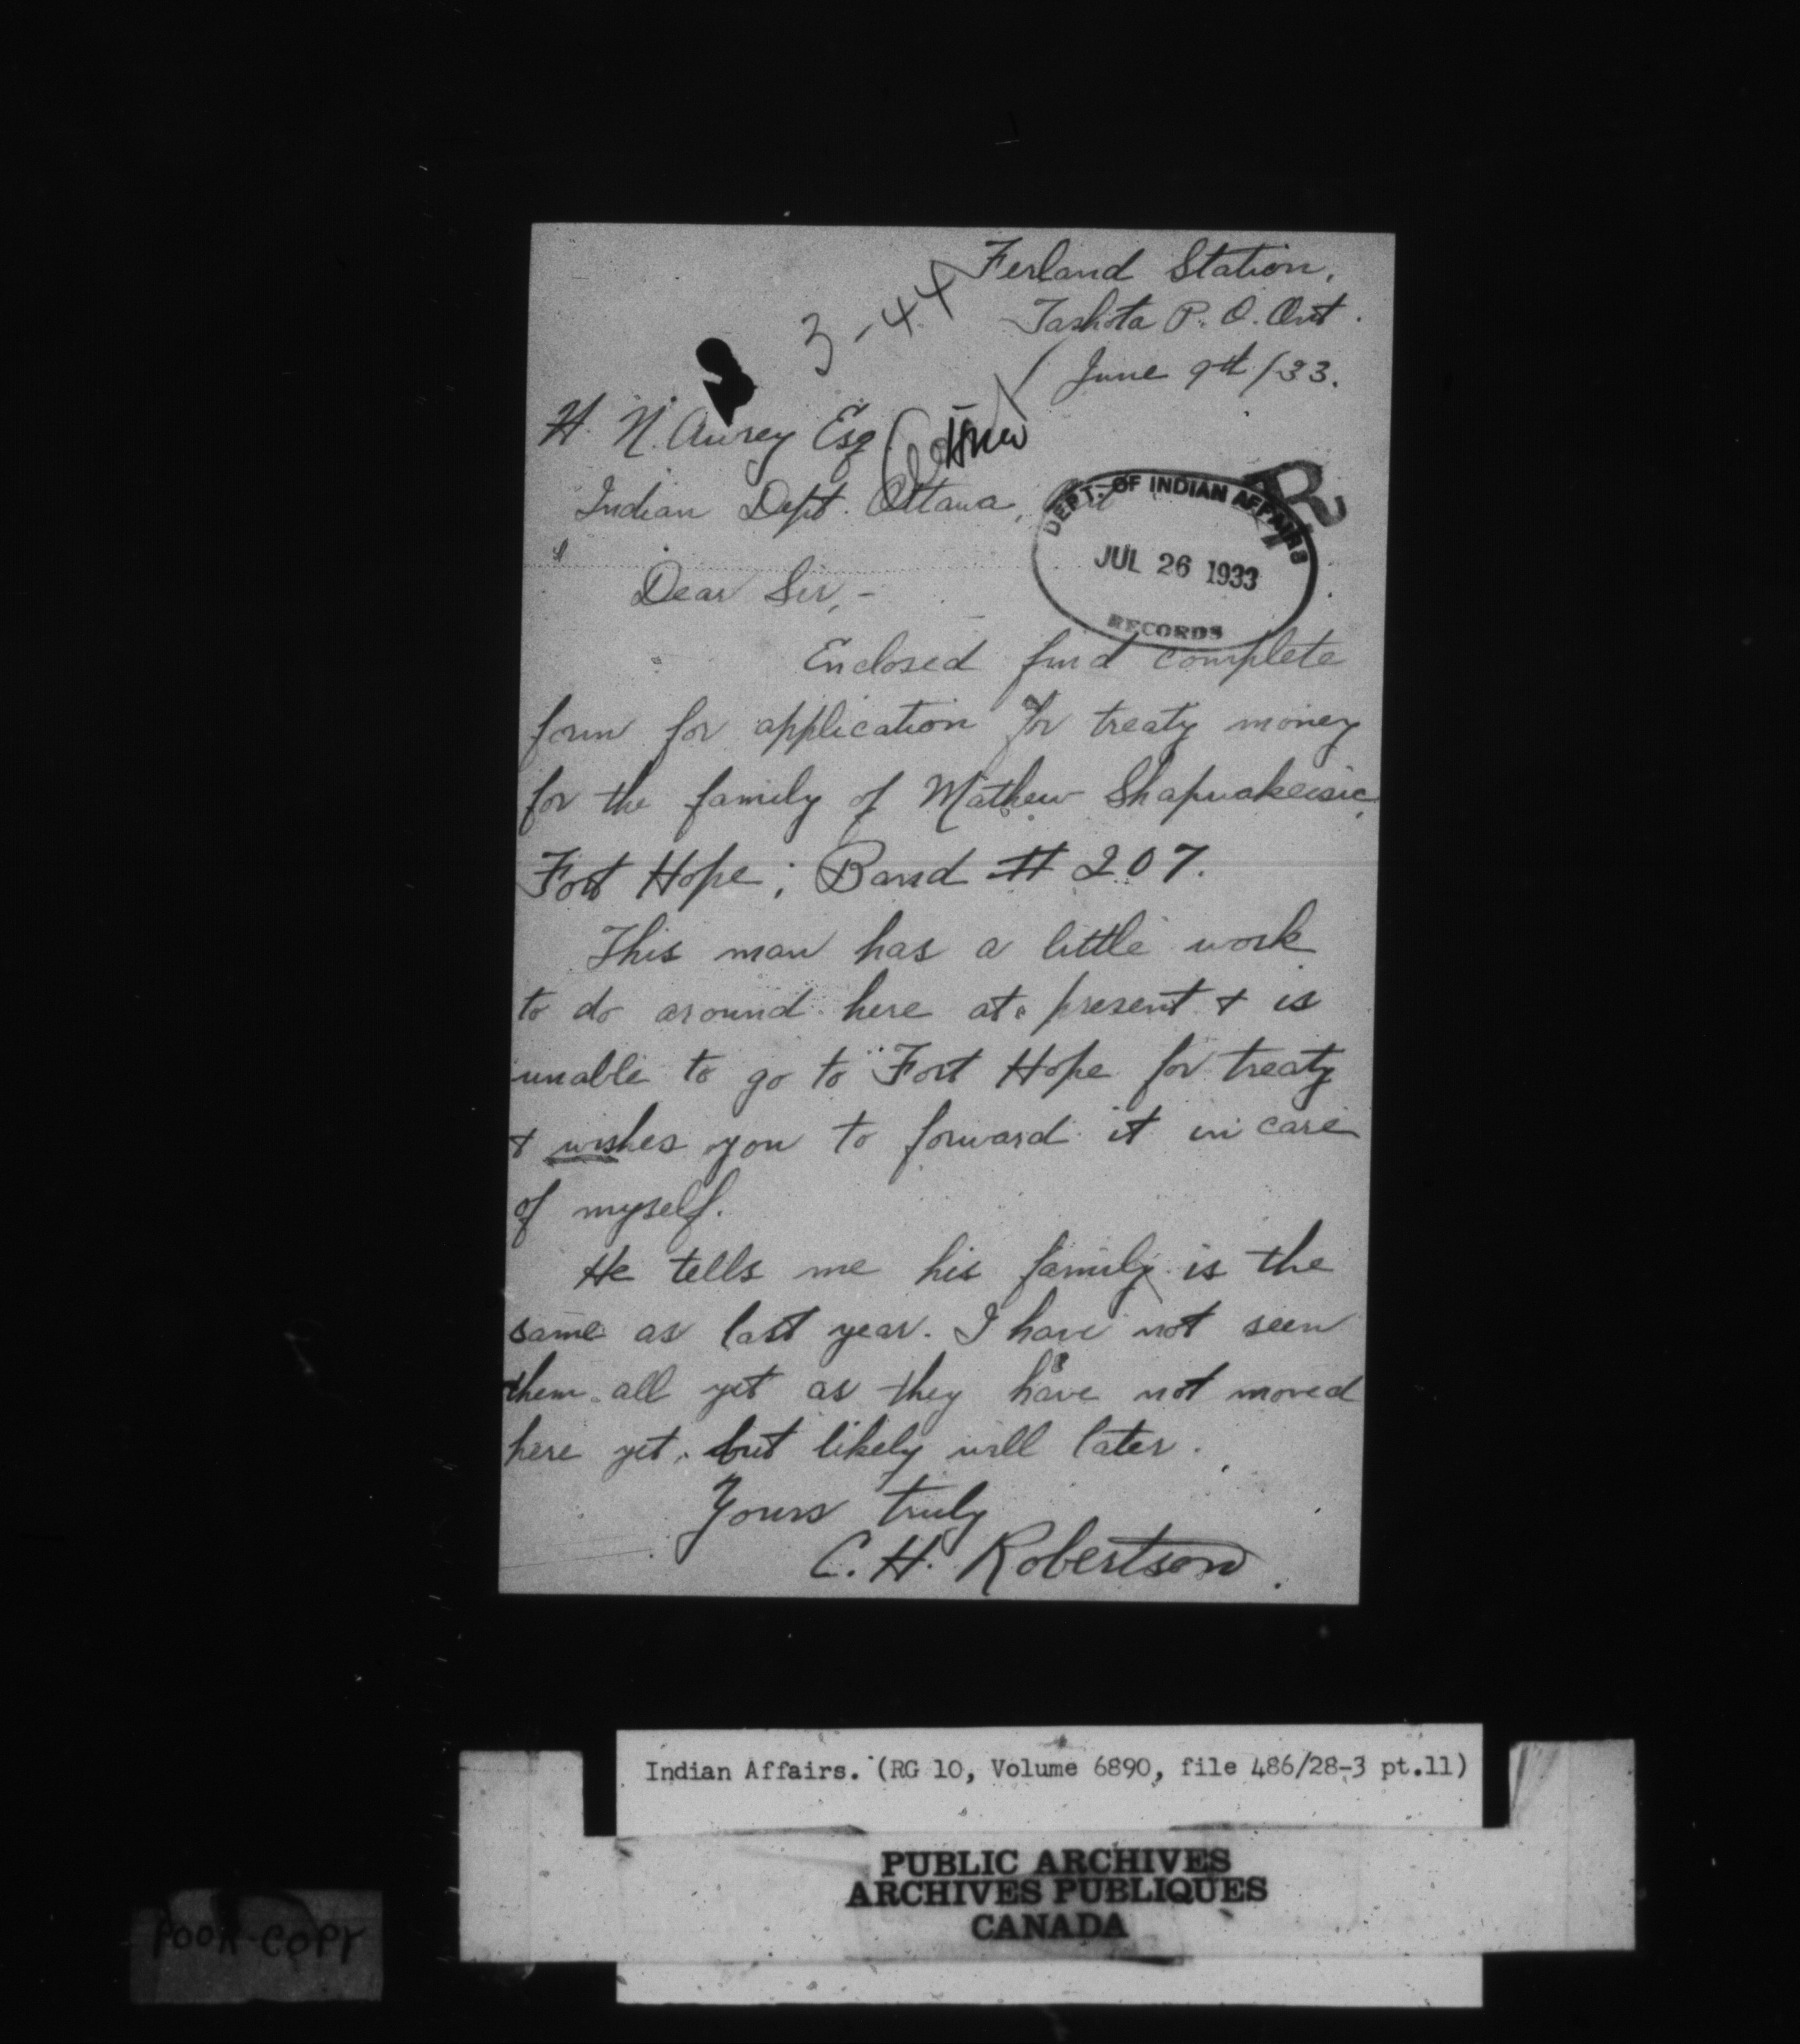 Ferland Station,
Tashota P. O. Ont.
June 9th /33.
3-44
H. N. Awrey Esq.
Indian Dept. Ottawa, Ont
DEPT. OF INDIAN AFFAIRS
R
JUL 26 1933
RECORDS
Dear Sir,-
Enclosed find complete
form for application for treaty money
for the family of Mathew Shapwakeesic,
Fort Hope; Band # 207.
This man has a little work
to do around here at present & is
unable to go to Fort Hope for treaty
& wishes you to forward it in care
of myself.
He tells me his family is the
same as last year. I have not seen
them all yet as they have not moved
here yet, but likely will later.
Yours truly
C. H. Robertson.
Indian Affairs. (RG 10, Volume 6890, file 486/28-3 pt.11)
PUBLIC ARCHIVES
ARCHIVES PUBLIQUES
CANADA
POOR COPY